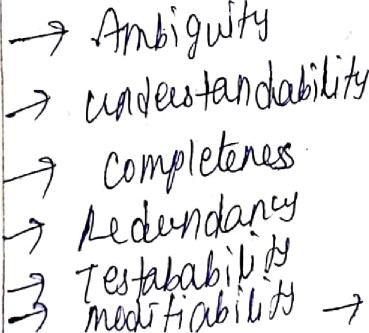 → Ambiguity
→ understandability
→ Completeness
→ Redundancy
→ Testabability
→ modifiability →